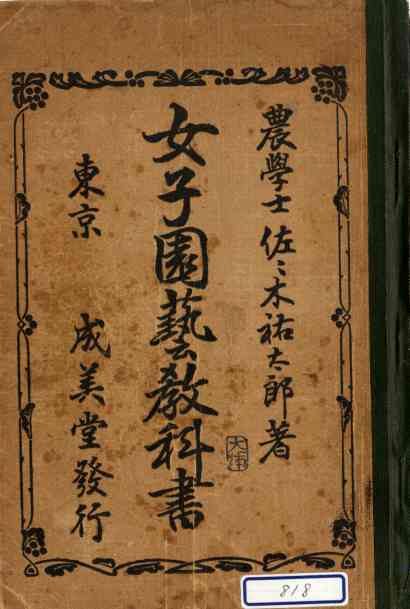 農學士 佐々木祐太郎著
女子園藝敎科書
東京 成美堂發行
818